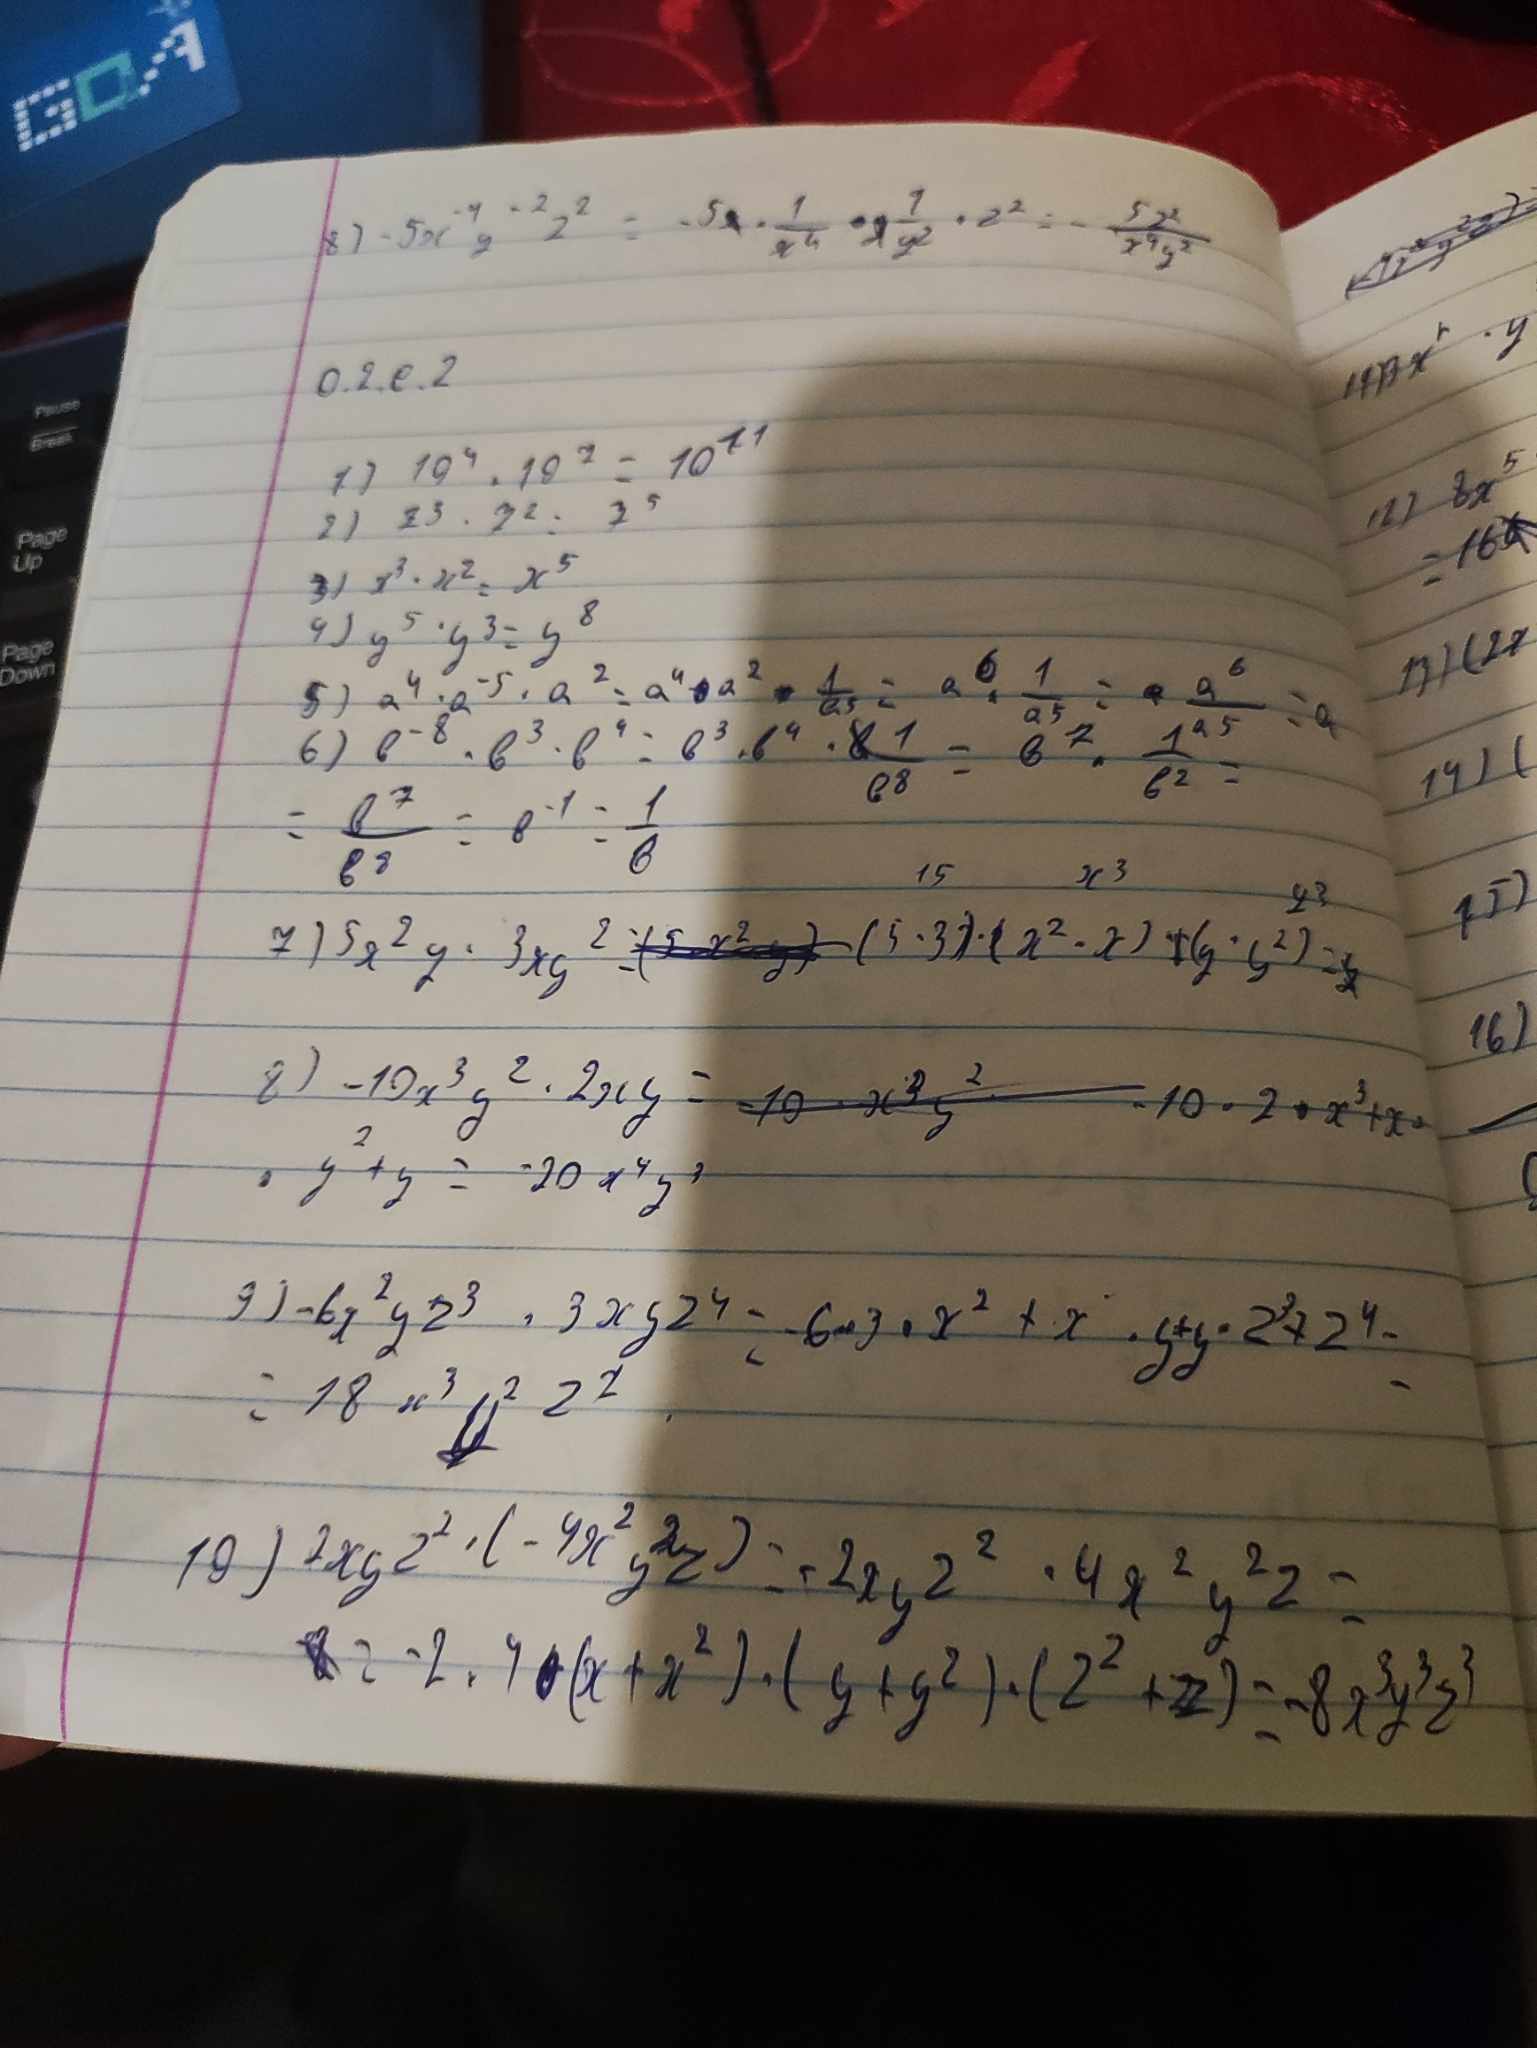 GDA
Pause
Break
Page
Up
Page
Down
8) -5x⁻⁴y⁻²z² = -5 · 1/x⁴ · 1/y² · z² = - 5z²/x⁴y²
0.2.e.2
1) 10⁴ · 10⁷ = 10¹¹
2) 7³ · 7² = 7⁵
3) x³ · x² = x⁵
4) y⁵ · y³ = y⁸
5) a⁴ · a⁻⁵ · a² = a⁴ · a² · 1/a⁵ = a⁶ · 1/a⁵ = a⁶/a⁵ = a
6) b⁻⁸ · b³ · b⁴ = b³ · b⁴ · 1/b⁸ = b⁷ · 1/b² =
= b⁷/b⁸ = b⁻¹ = 1/b
15 x³ y³
7) 5x²y · 3xy² = (5·3)·(x²·x)·(y·y²) =
8) -10x³y² · 2xy = -10 · 2 · x³+x ·
· y²+y = -20x⁴y³
9) -6x²yz³ · 3xyz⁴ = -6·3·x²+x · y+y · z³+z⁴ =
= 18x³y²z⁷
10) 2xyz² · (-4x²y²z) = -2xyz² · 4x²y²z =
= -2 · 4 · (x+x²) · (y+y²) · (z²+z) = -8x³y³z³
· y
12) 8x⁵
= 16
13) (2x
14) (
15)
16)